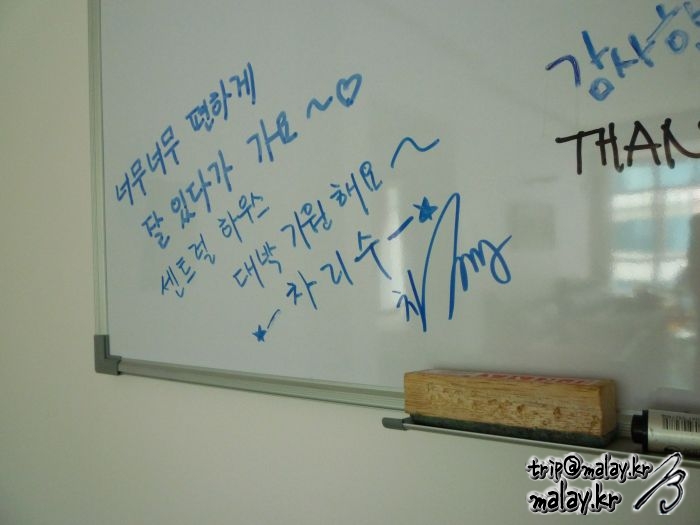 너무너무 편하게
잘 있다가 가요~♡
센트럴 하우스
대박 기원해요~
★-차리수-★
감사합
THAN
trip@malay.kr
malay.kr